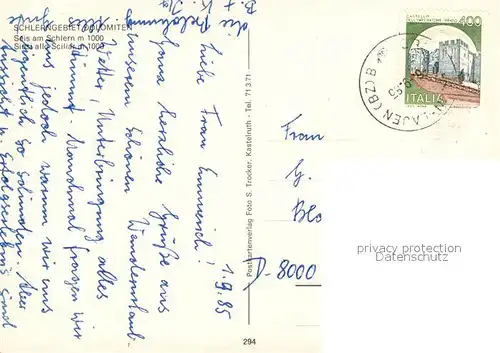 SCHLERNGEBIET DOLOMITEN
Seis am Schlern m 1000
Siusi allo Sciliar m 1000
1.9.85
Liebe Frau Emmerich!
Ganz herzliche Grüße aus
unserem schönen Wanderurlaub.
Wetter, Unterbringung, alles
stimmt. Manchmal fragen wir
uns jedoch warum wir uns
eigentlich so schinden. Aber
Aussicht u. Erfolgserlebnis sind
die Belohnung
Postkartenverlag Foto S. Trocker, Kastelruth - Tel. 71371
294
CASTELLO
400
ITALIA
LAJEN (BZ) B
Frau
G.
Blo
D-8000
privacy protection
Datenschutz